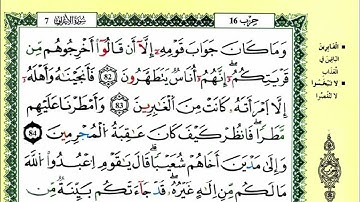 حزب 16
سورة الأعراف 7
وَمَا كَانَ جَوَابَ قَوْمِهِ إِلَّا أَن قَالُوا أَخْرِجُوهُم مِّن
قَرْيَتِكُمْ إِنَّهُمْ أُنَاسٌ يَتَطَهَّرُونَ 82 فَأَنجَيْنَاهُ وَأَهْلَهُ
إِلَّا امْرَأَتَهُ كَانَتْ مِنَ الْغَابِرِينَ 83 وَأَمْطَرْنَا عَلَيْهِم
مَّطَرًا فَانظُرْ كَيْفَ كَانَ عَاقِبَةُ الْمُجْرِمِينَ 84
وَإِلَى مَدْيَنَ أَخَاهُمْ شُعَيْبًا قَالَ يَاقَوْمِ اعْبُدُوا اللَّهَ
مَا لَكُم مِّنْ إِلَهٍ غَيْرُهُ قَدْ جَاءَتْكُم بَيِّنَةٌ مِّن
الغابرين
الباقين في
العذاب
لا تبخسوا
لا تنقصوا